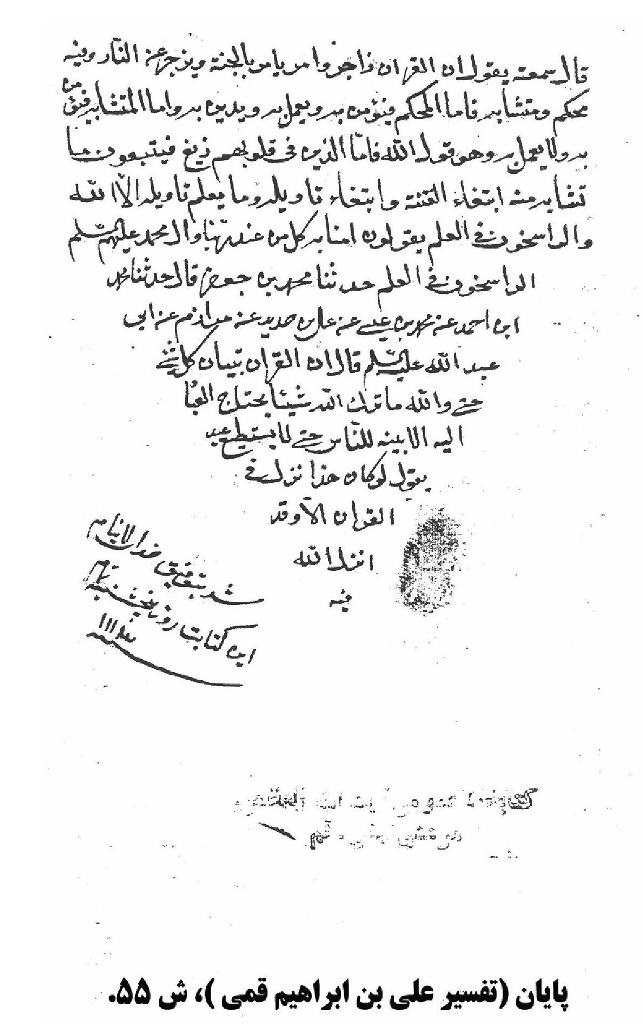 قال سمعته يقول ان القران زاجر وامر يامر بالجنة ويزجر عن النار وفيه
محكم ومتشابه فاما المحكم فيؤمن به ويعمل به ويدين به واما المتشابه فيؤمن
به ولا يعمل به وهو قول الله فاما الذين فى قلوبهم زيغ فيتبعون ما
تشابه منه ابتغاء الفتنة وابتغاء تاويله وما يعلم تاويله الا الله
والراسخون فى العلم يقولون امنا به كل من عند ربنا وال محمد عليهم السلم
الراسخون فى العلم حدثنا محمد بن جعفر قال حدثنا محمد
ابن احمد عن محمد بن عيسى عن على بن حديد عن مرازم عن ابى
عبد الله عليه السلم قال ان القران تبيان كل شئ
حتى والله ما ترك الله شيئا يحتاج العباد
اليه الا بينه للناس حتى لا يستطيع عبد
يقول لوكان هذا نزل فى
القران الا وقد
انزل الله
فيه
شد بتوفيق
اين كتابت روز پنجشنبه
پایان (تفسیر علی بن ابراهیم قمی )، ش ۵۵.